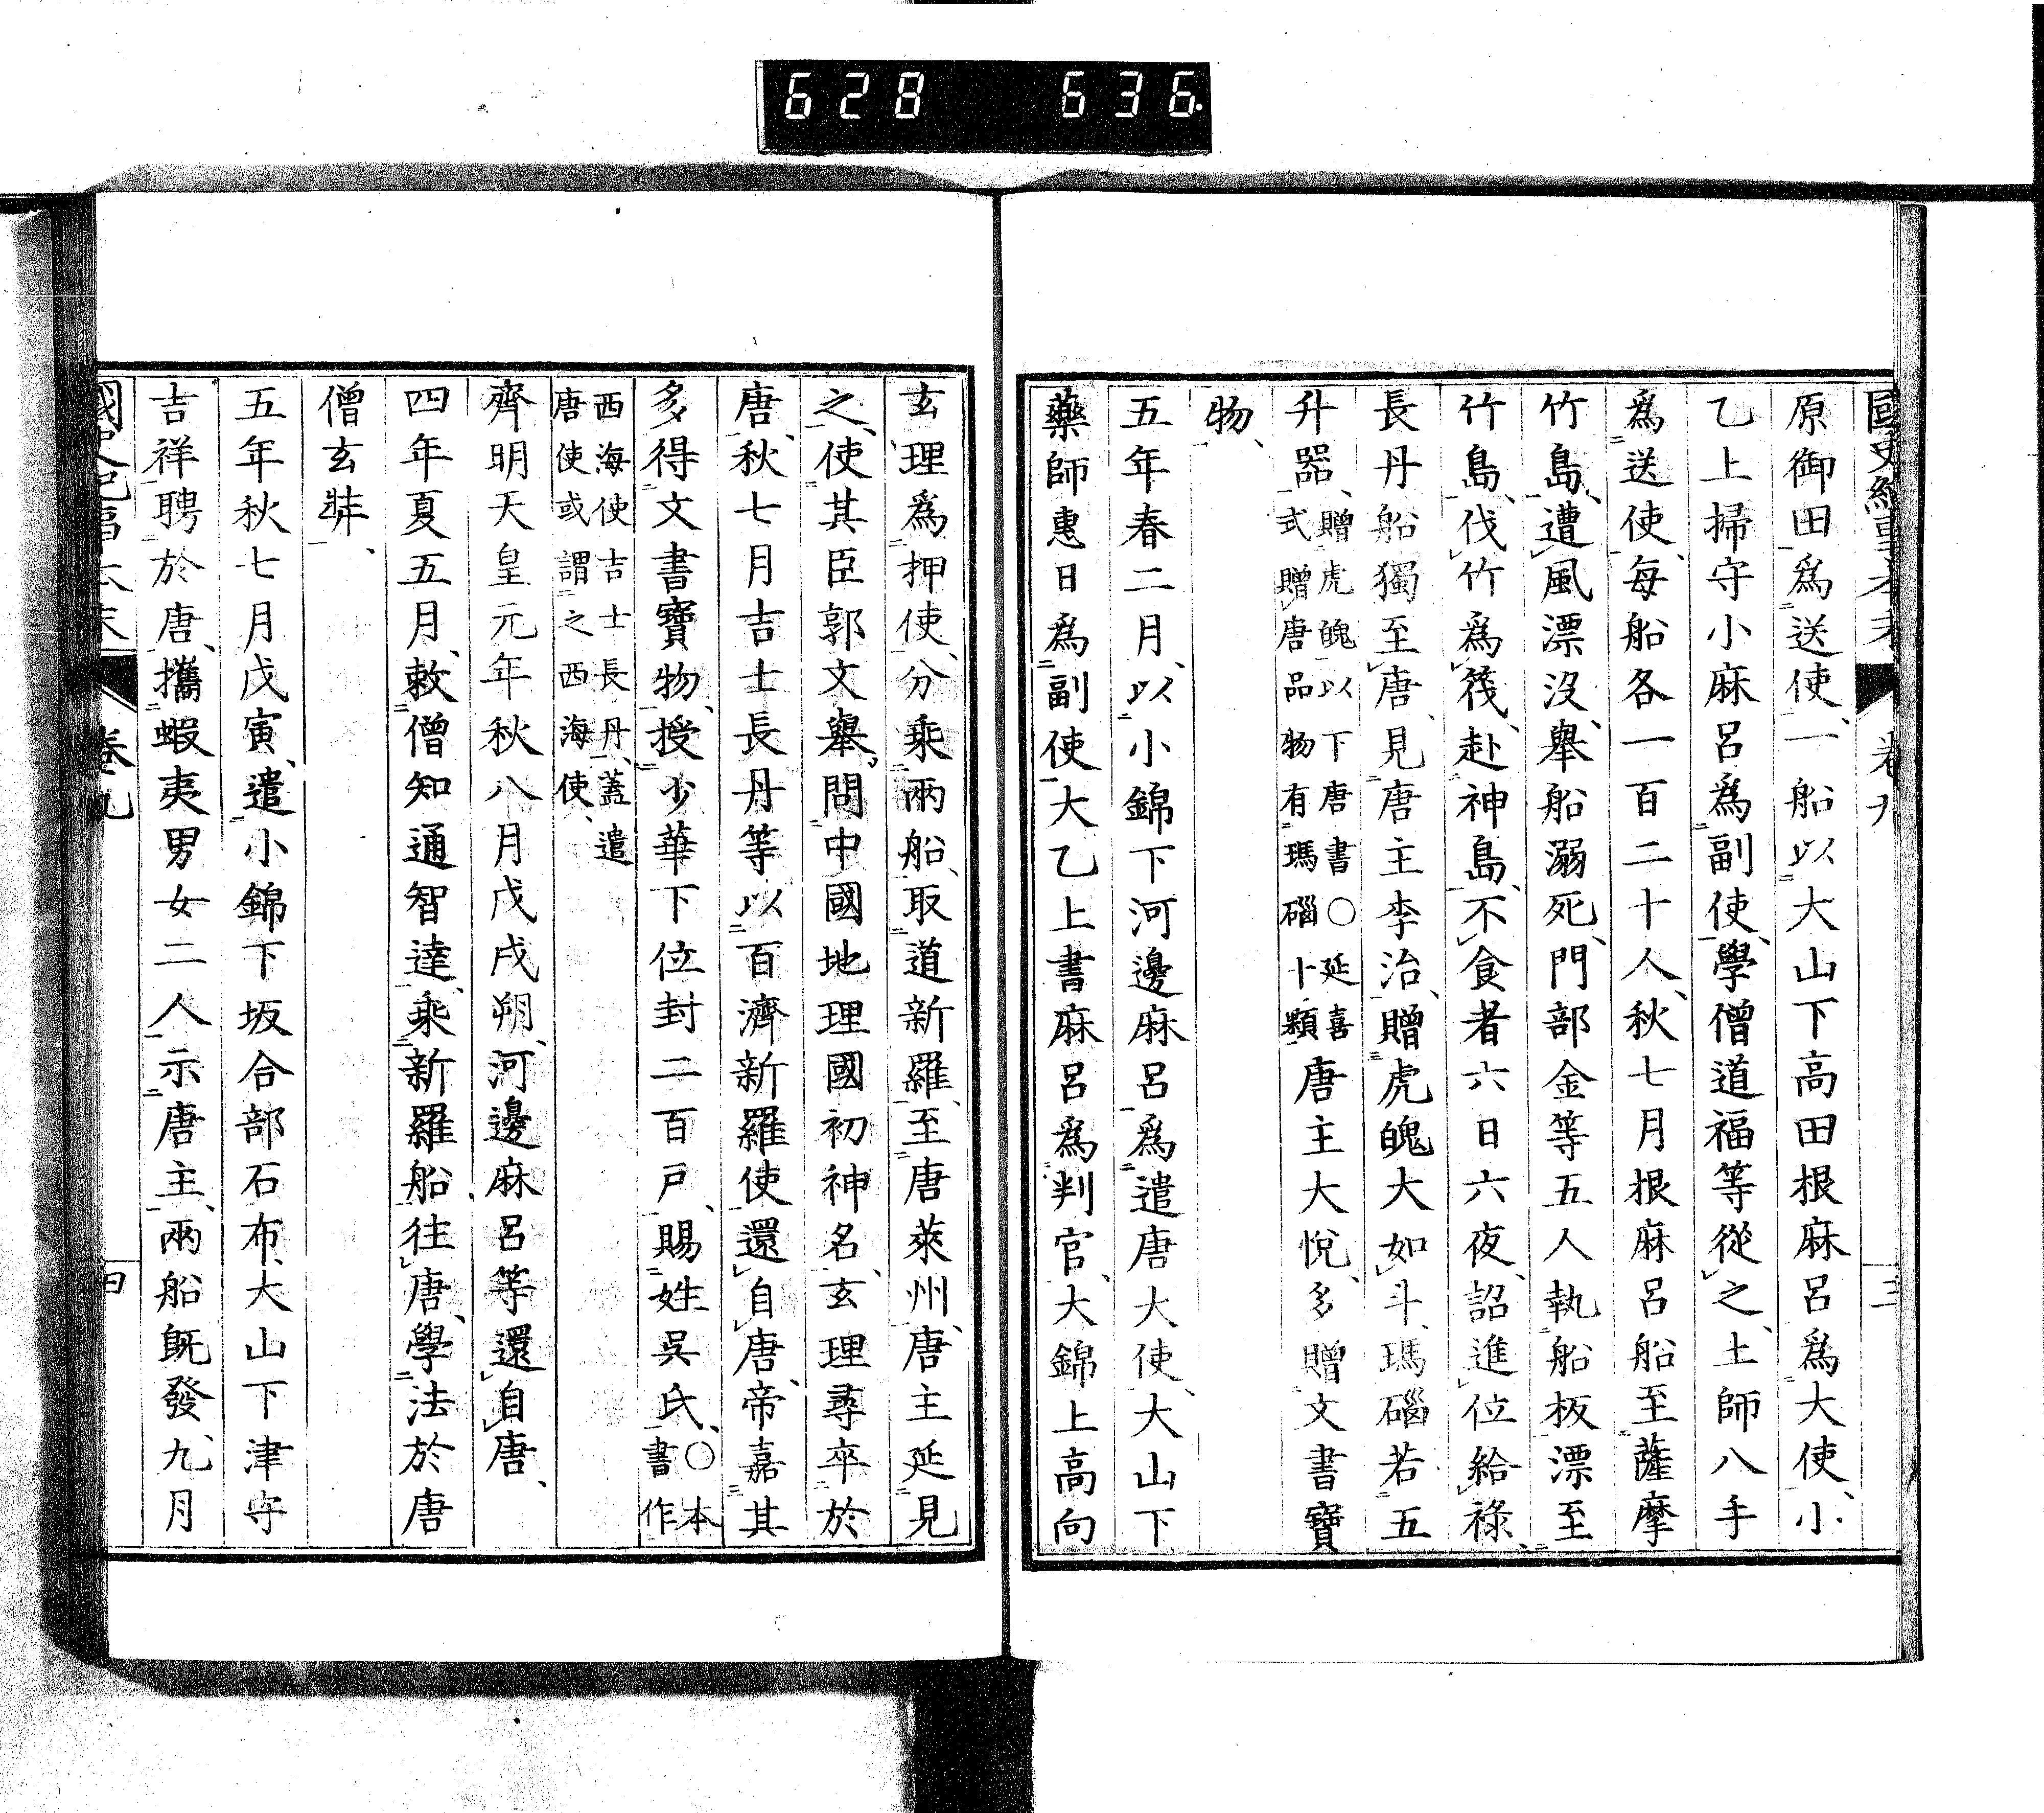 628 636.
原御田爲送使、一船以大山下高田根麻呂爲大使、小
乙上掃守小麻呂爲副使、學僧道福等從之、土師八手
爲送使、每船各一百二十人、秋七月根麻呂船至薩摩
竹島、遭風漂沒、舉船溺死、門部金等五人執船板漂至
竹島、伐竹爲筏、赴神島、不食者六日六夜、詔進位給祿、
長丹船獨至唐、見唐主李治、贈虎魄大如斗、瑪碯若五
升器、
贈虎魄以下唐書〇延喜
式贈唐品物有瑪碯十顆
唐主大悅、多贈文書寶
物、
五年春二月、以小錦下河邊麻呂爲遣唐大使、大山下
藥師惠日爲副使大乙上書麻呂爲判官、大錦上高向
玄理爲押使、分乘兩船、取道新羅、至唐萊州、唐主延見
之、使其臣郭文舉、問中國地理國初神名、玄理尋卒於
唐、秋七月吉士長丹等以百濟新羅使還自唐、帝嘉其
多得文書寶物、授少華下位封二百戸、賜姓吳氏、
〇本
書作
西海使吉士長丹、蓋遣
唐使或謂之西海使、
齊明天皇元年秋八月戊戌朔、河邊麻呂等還自唐、
四年夏五月、敕僧知通智達、乘新羅船、往唐、學法於唐
僧玄奘、
五年秋七月戊寅、遣小錦下坂合部石布、大山下津守
吉祥聘於唐、攜蝦夷男女二人示唐主、兩船既發、九月